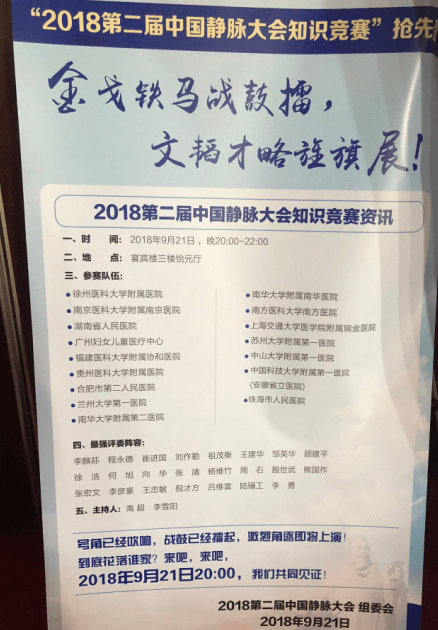 “2018第二届中国静脉大会知识竞赛”抢先
金戈铁马战鼓擂，
文韬才略旌旗展！
2018第二届中国静脉大会知识竞赛资讯
一、时　间：2018年9月21日，晚20:00-22:00
二、地　点：宴宾楼三楼怡元厅
三、参赛队伍：
●徐州医科大学附属医院
●南京医科大学附属南京医院
●湖南省人民医院
●广州妇女儿童医疗中心
●福建医科大学附属协和医院
●贵州医科大学附属医院
●合肥市第二人民医院
●兰州大学第一医院
●南华大学附属第二医院
●南华大学附属南华医院
●南方医科大学南方医院
●上海交通大学医学院附属瑞金医院
●苏州大学附属第一医院
●中山大学附属第一医院
●中国科技大学附属第一医院
(安徽省立医院)
●珠海市人民医院
四、最强评委阵容：
李麟荪　程永德　崔进国　刘作勤　祖茂衡　王建华　邹英华　顾建平
徐　浩　何　旭　向　华　张　靖　杨维竹　周　石　殷世武　熊国祚
张宏文　李彦豪　王忠敏　倪才方　吕维富　陆骊工　李　勇
五、主持人：高　超　李雪阳
号角已经吹响，战鼓已经擂起，激烈角逐即将上演！
到底花落谁家？来吧，来吧，
2018年9月21日20:00，我们共同见证！
2018第二届中国静脉大会 组委会
2018年9月21日